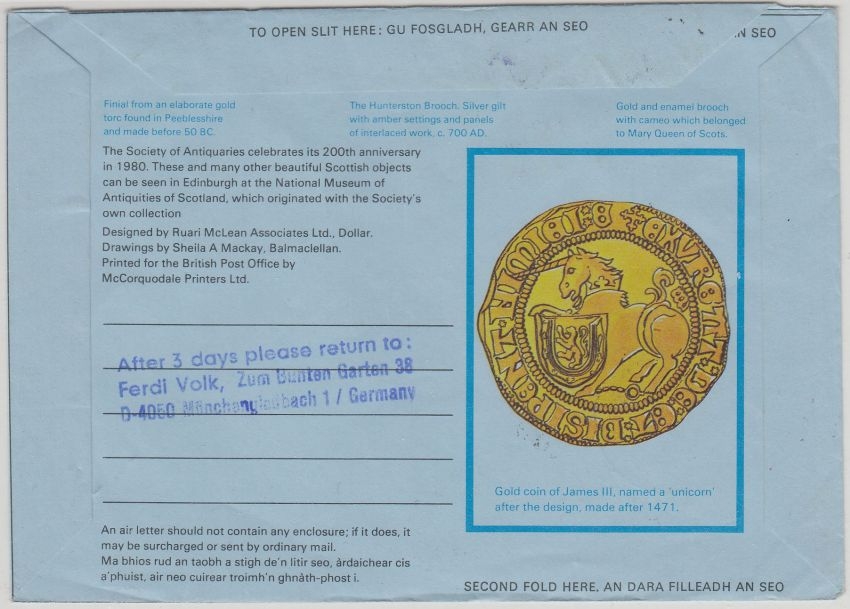 TO OPEN SLIT HERE: GU FOSGLADH, GEARR AN SEO
AN SEO
Finial from an elaborate gold
torc found in Peeblesshire
and made before 50 BC.
The Hunterston Brooch. Silver gilt
with amber settings and panels
of interlaced work, c. 700 AD.
Gold and enamel brooch
with cameo which belonged
to Mary Queen of Scots.
The Society of Antiquaries celebrates its 200th anniversary
in 1980. These and many other beautiful Scottish objects
can be seen in Edinburgh at the National Museum of
Antiquities of Scotland, which originated with the Society's
own collection
Designed by Ruari McLean Associates Ltd., Dollar.
Drawings by Sheila A Mackay, Balmaclellan.
Printed for the British Post Office by
McCorquodale Printers Ltd.
After 3 days please return to:
Ferdi Volk, Zum Bunten Garten 38
D-4050 Mönchengladbach 1 / Germany
Gold coin of James III, named a 'unicorn'
after the design, made after 1471.
An air letter should not contain any enclosure; if it does, it
may be surcharged or sent by ordinary mail.
Ma bhios rud an taobh a stigh de'n litir seo, àrdaichear cis
a'phuist, air neo cuirear troimh'n ghnàth-phost i.
SECOND FOLD HERE, AN DARA FILLEADH AN SEO